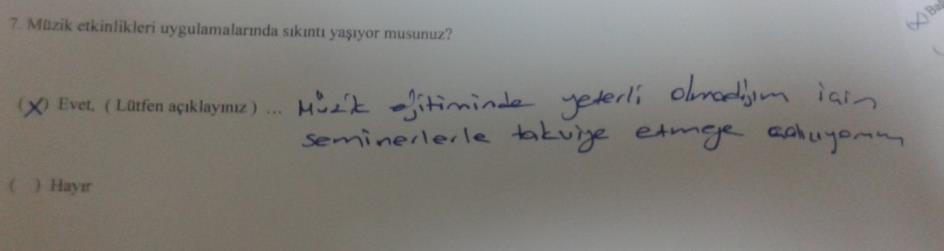 7. Müzik etkinlikleri uygulamalarında sıkıntı yaşıyor musunuz?
(X) Evet, ( Lütfen açıklayınız ) ... Müzik eğitiminde yeterli olmadığım için
seminerlerle takviye etmeye çalışıyorum
( ) Hayır